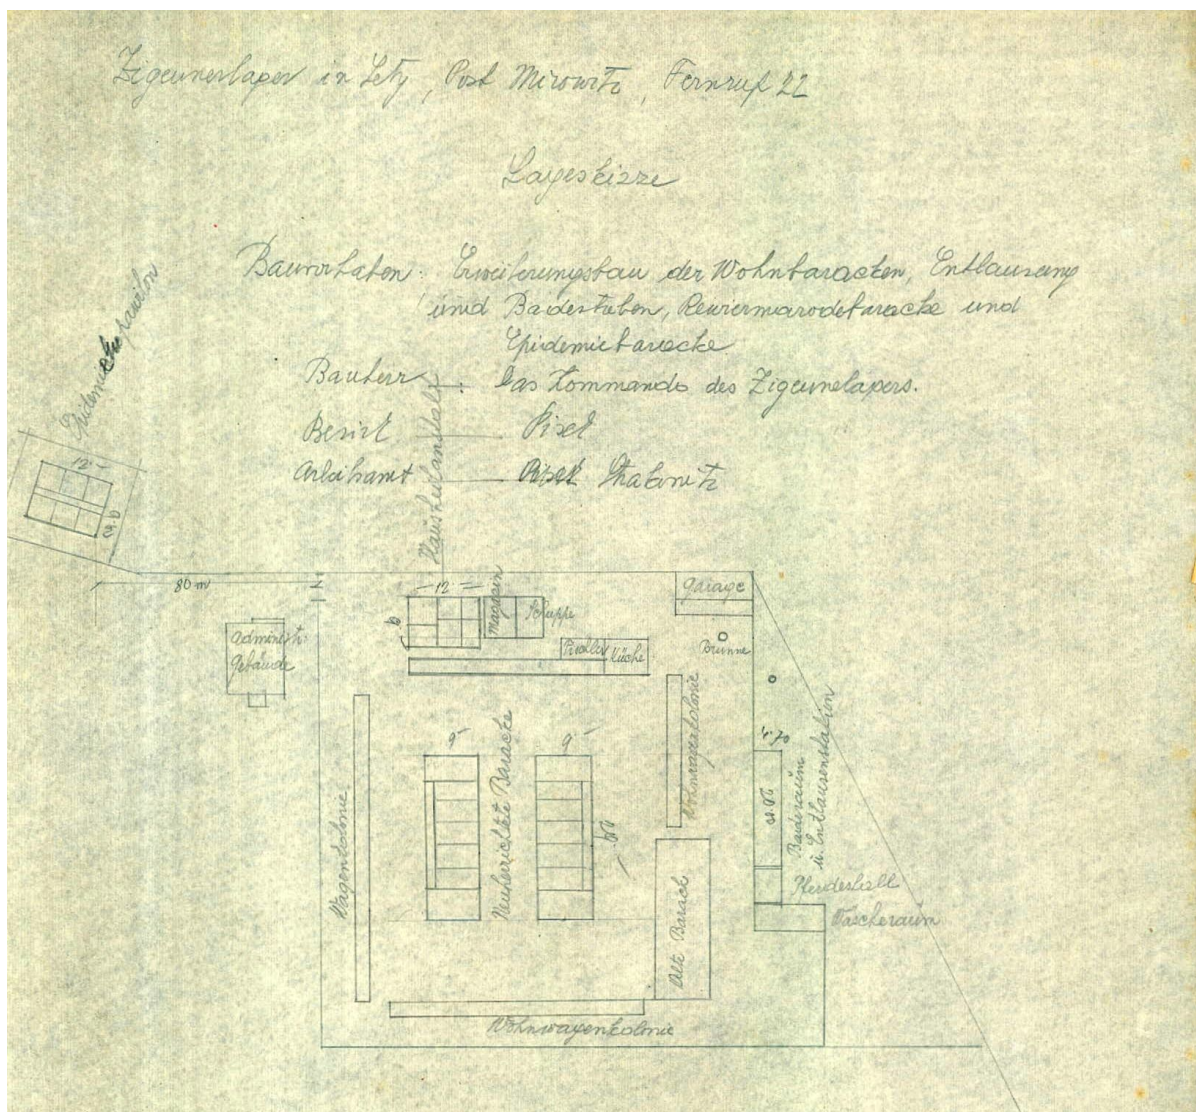 Zigeunerlager in Lety, Post Mirowitz, Fernruf 22
Lageskizze
Bauvorhaben: Erweiterungsbau der Wohnbaracken, Entlausung
und Badestuben, Reviermarodebaracke und
Epidemiebaracke
Bauherr : Das Kommando des Zigeunelagers.
Besirk Pisek
Arbeitsamt Pisek Strakonitz
12
80 m
12
6
Magazin
Schuppe
Küche
Garage
Brunne
Administr.
Gebäude
Wagenkolonie
9
Neuherrichtete Baracke
9
Wohnwagenkolonie
Alte Barack
4.70
Baderaum
u. Entlausenstation
Pferdestall
Wascheraum
Wohnwagenkolonie